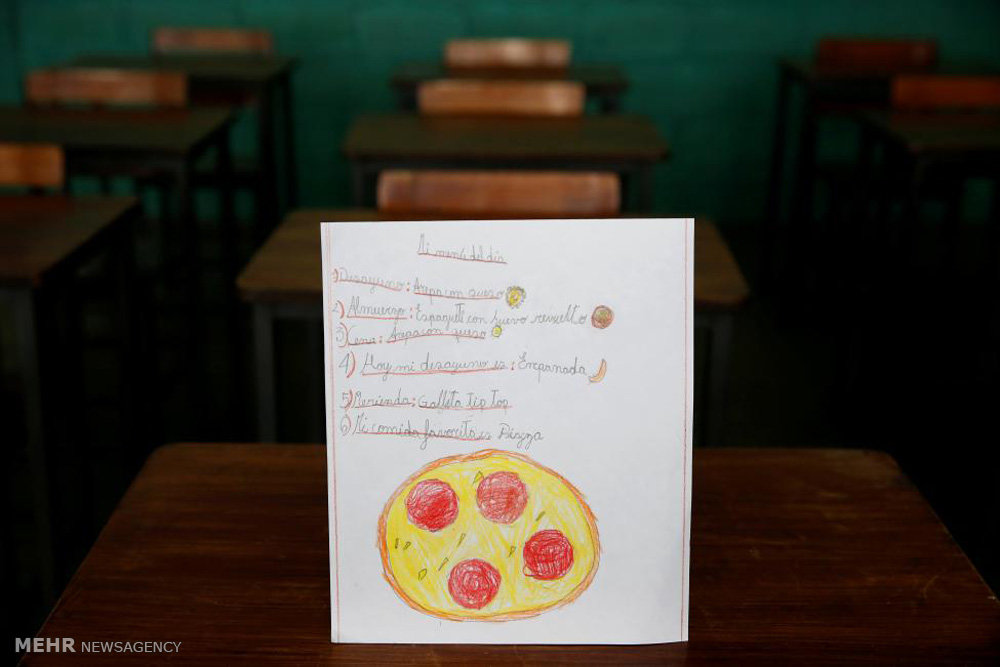 Mi menú del día
1) Desayuno: Arepa con queso
2) Almuerzo: Espagueti con huevo revuelto
3) Cena: Arepa con queso
4) Hoy mi desayuno es: Empanada
5) Merienda: Galleta tip top
6) Mi comida favorita es Pizza
MEHR NEWSAGENCY